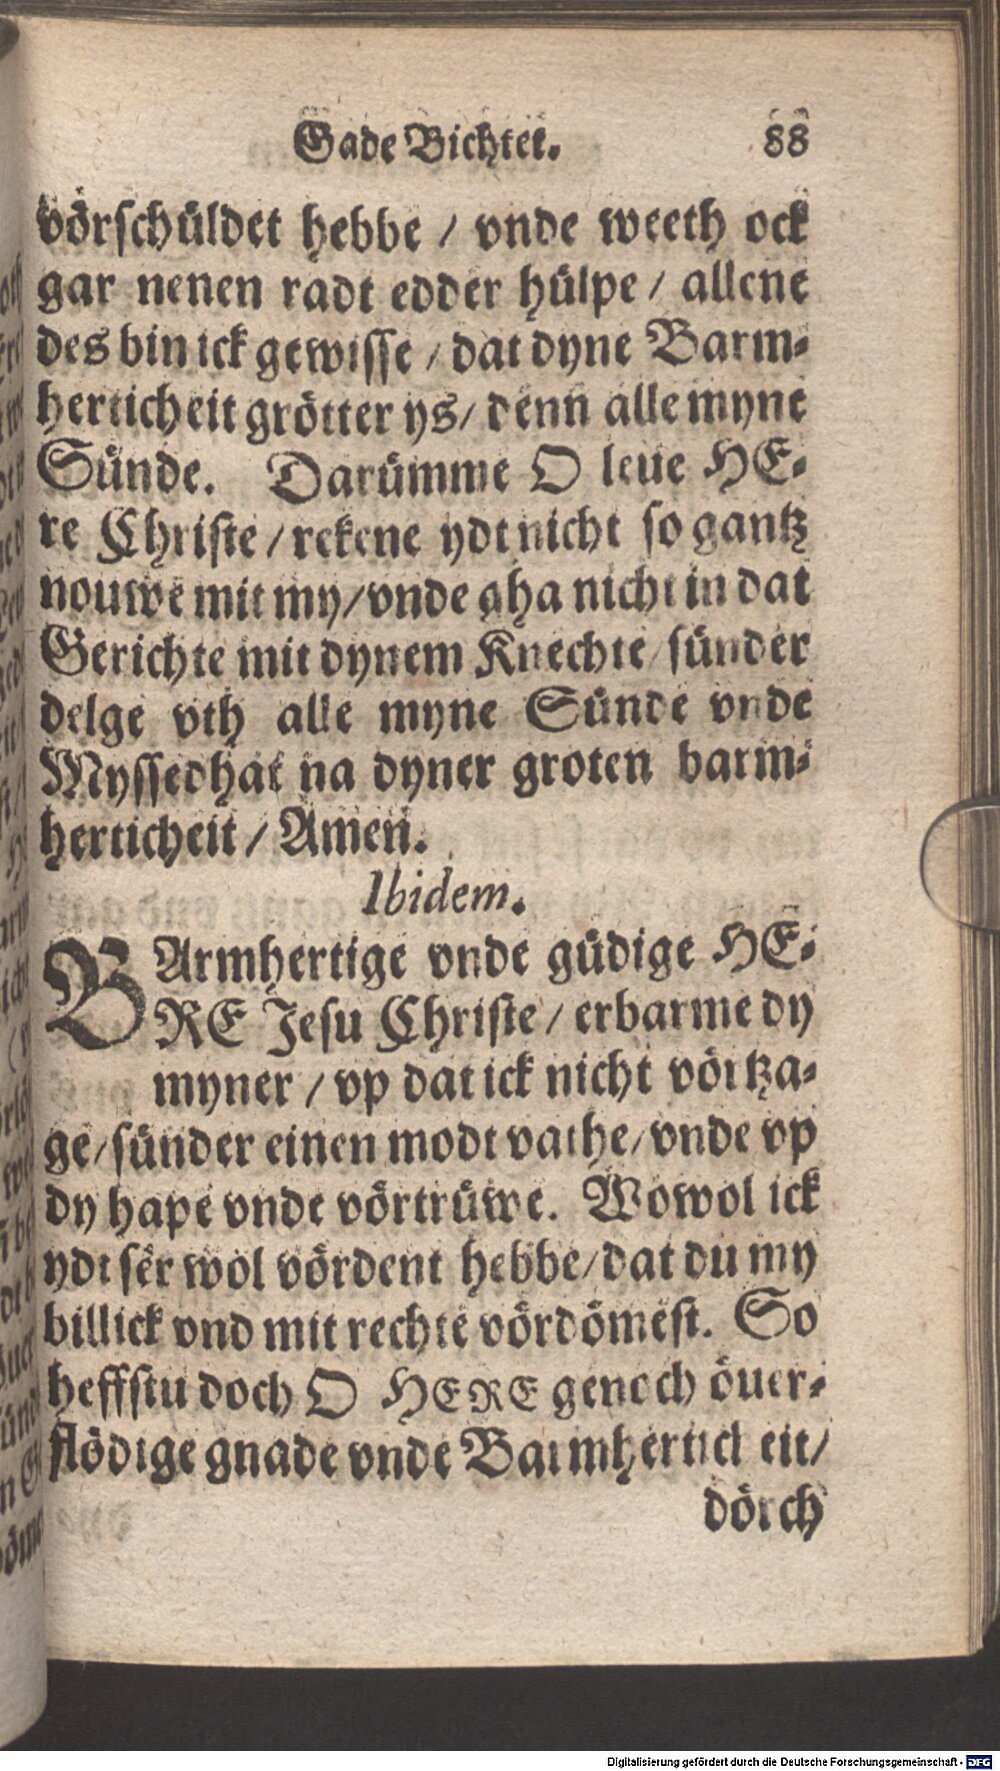 Gade Bichtet. 88
vörschüldet hebbe / vnde weeth ock
gar nenen radt edder hülpe / allene
des bin ick gewisse / dat dyne Barm-
herticheit grötter ys / denn alle myne
Sünde. Darümme O leue HE-
re Christe / rekene ydt nicht so gantz
nouwe mit my / vnde gha nicht in dat
Gerichte mit dynem Knechte / sünder
delge vth alle myne Sünde vnde
Myssedhat na dyner groten barm-
herticheit / Amen.
Ibidem.
BArmhertige vnde güdige HE-
RE Jesu Christe / erbarme dy
myner / vp dat ick nicht vörtza-
ge / sünder einen modt vathe / vnde vp
dy hape vnde vörtrüwe. Wowol ick
ydt sër wol vördent hebbe / dat du my
billick vnd mit rechte vördömest. So
heffstu doch O HERE genoch öuer-
flödige gnade vnde Barmherticheit /
dörch
Digitalisierung gefördert durch die Deutsche Forschungsgemeinschaft - DFG